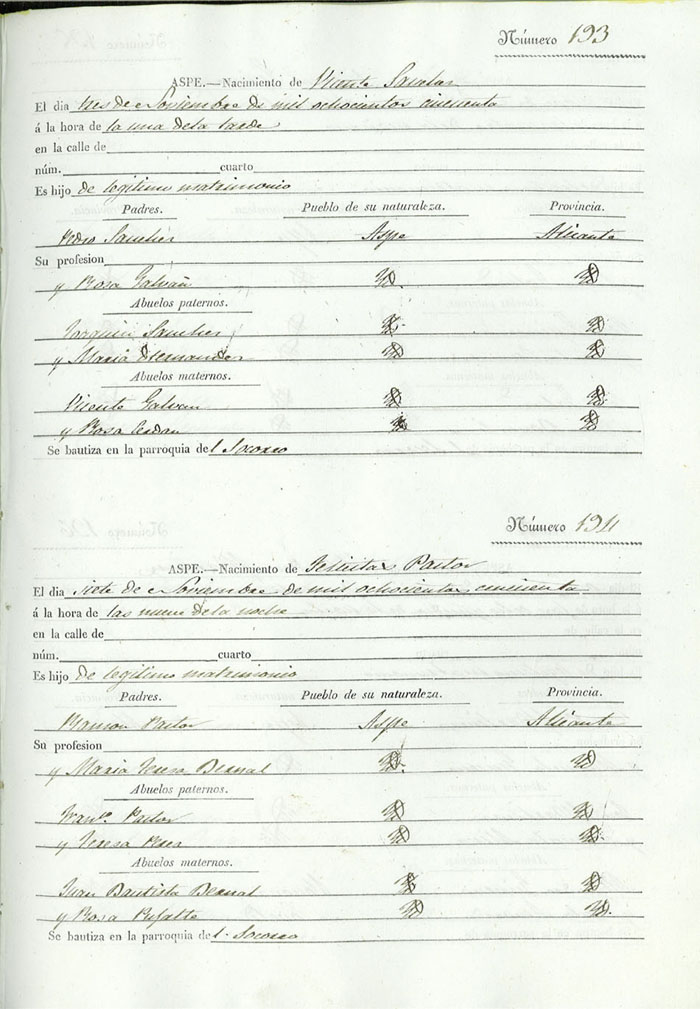 Número 193
ASPE.—Nacimiento de Vicente Sanchez
El dia tres de Noviembre de mil ochocientos cincuenta
á la hora de la una dela tarde
en la calle de
núm. cuarto
Es hijo de legitimo matrimonio
Padres. Pueblo de su naturaleza. Provincia.
Pedro Sanchez Aspe Alicante
Su profesion
y Rosa Galvañ Yd. Yd
Abuelos paternos.
Joaquin Sanchez Yd. Yd
y Maria Hernandez Yd Yd
Abuelos maternos.
Vicente Galvañ Yd Yd
y Rosa Yd Yd
Se bautiza en la parroquia del Socorro
Número 194
ASPE.—Nacimiento de Felicitas Pastor
El dia siete de Noviembre de mil ochocientos cincuenta
á la hora de las nueve dela noche
en la calle de
núm. cuarto
Es hijo de legitimo matrimonio
Padres. Pueblo de su naturaleza. Provincia.
Ramon Pastor Aspe Alicante
Su profesion
y Maria Teresa Bernal Yd. Yd
Abuelos paternos.
Franco. Pastor Yd Yd
y Teresa Yd Yd
Abuelos maternos.
Juan Bautista Bernal Yd Yd
y Rosa Yd Yd.
Se bautiza en la parroquia del Socorro